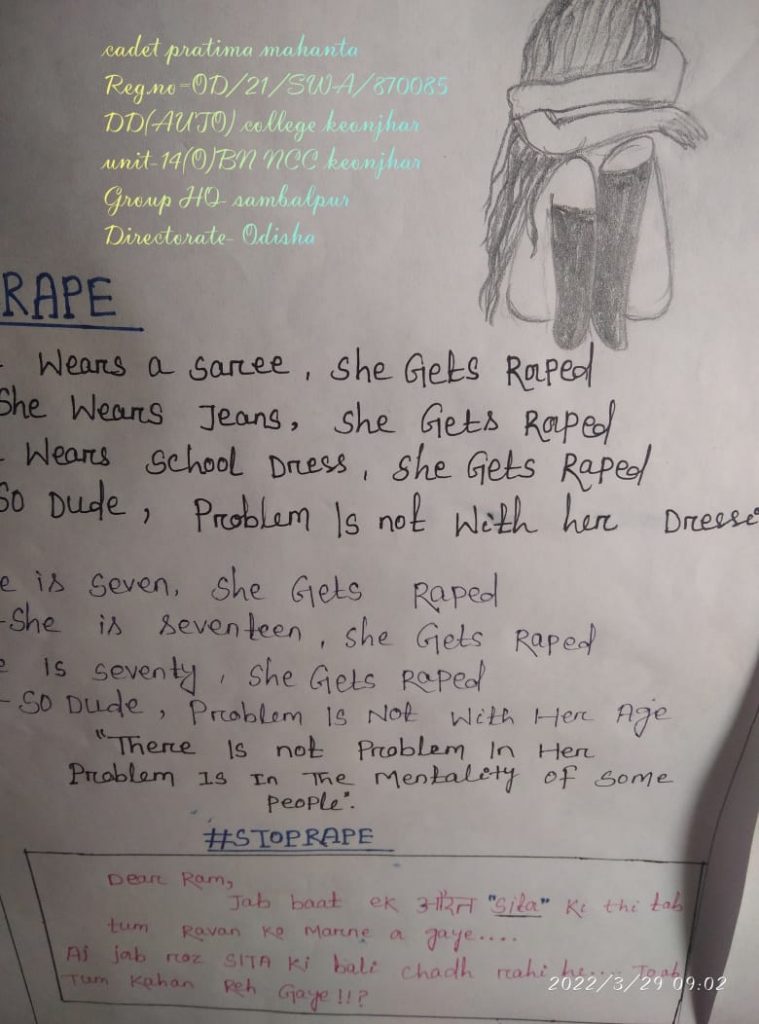 cadet pratima mahanta
Reg.no=OD/21/SWA/870085
DD(AUTO) college keonjhar
unit-14(O)BN NCC keonjhar
Group HQ- sambalpur
Directorate- Odisha
RAPE
- Wears a saree, she Gets Raped
She Wears Jeans, she Gets Raped
- Wears School Dress, she Gets Raped
So Dude, Problem Is not With her Dresse
e is Seven, she Gets Raped
-She is seventeen, she Gets Raped
e Is seventy, she Gets Raped
- So Dude, Problem Is Not With Her Age
"There Is not Problem In Her
Problem Is In The Mentality Of Some
People".
#STOPRAPE
Dear Ram,
Jab baat ek औरत "Sita" Ki thi tab
tum Ravan Ko Marne a gaye....
Aj jab roz SITA Ki bali chadh rahi he... Taab
Tum Kahan Reh Gaye!!?
2022/3/29 09:02